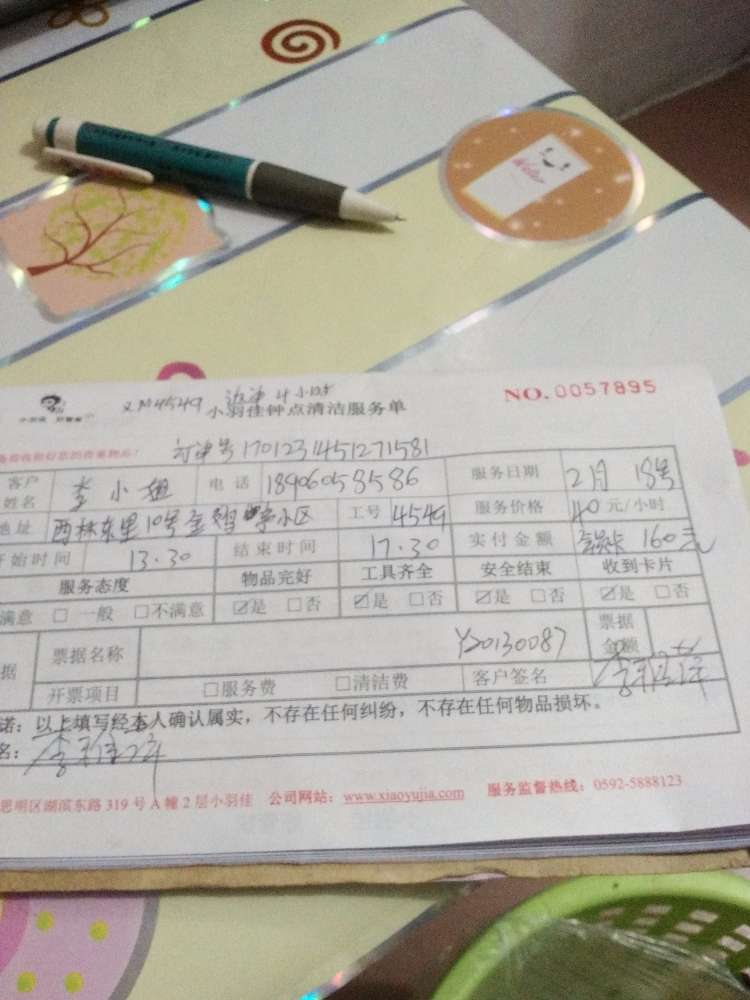 NO. 0057895
XM4549
小羽佳钟点清洁服务单
订单号 1701231451271581
客户姓名 李小姐 电话 18906058586 服务日期 2月18号
地址 西林东里10号金 小区 工号 4549 服务价格 40元/小时
开始时间 13.30 结束时间 17.30 实付金额 160元
服务态度 物品完好 工具齐全 安全结束 收到卡片
满意 □ 一般 □不满意 ☑是 □否 ☑是 □否 ☑是 □否 ☑是 □否
据 票据名称 Y20130087 票据金额
开票项目 □服务费 □清洁费 客户签名
诺：以上填写经本人确认属实，不存在任何纠纷，不存在任何物品损坏。
名：
思明区湖滨东路 319 号 A 幢 2 层小羽佳 公司网站：www.xiaoyujia.com 服务监督热线：0592-5888123